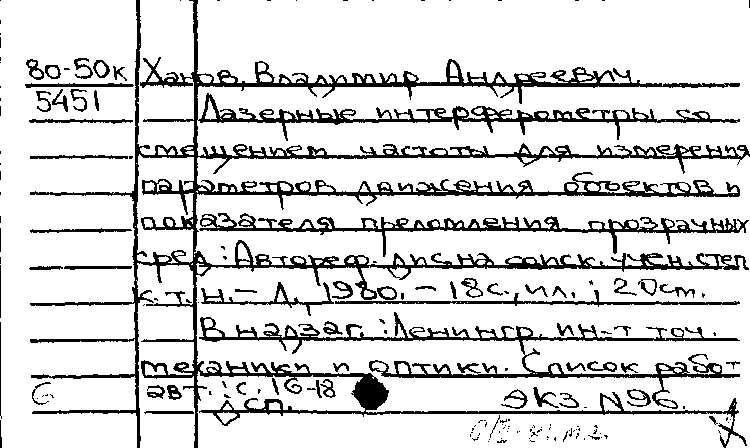 80-50к Ханов, Владимир Андреевич.
5451 Лазерные интерферометры со
смещением частоты для измерения
параметров движения объектов и
показателя преломления прозрачных
сред : Автореф. дис. на соиск. учен. степ
к. т. н. – Л., 1980. – 18 с., ил. ; 20 см.
В надзаг. : Ленингр. ин-т точ.
механики и оптики. Список работ
авт. : с. 16-18
б сп. ЭКЗ. N96.